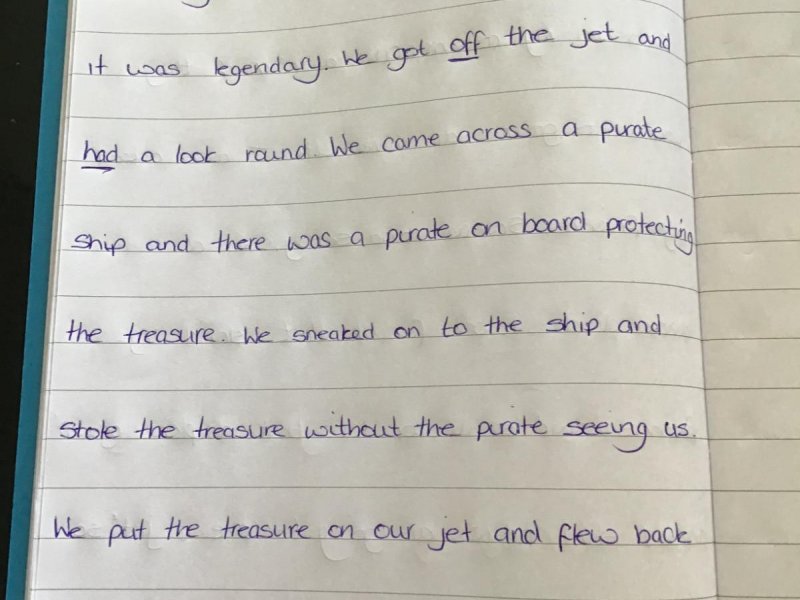 it was legendary. We got off the jet and
had a look round. We came across a pirate
ship and there was a pirate on board protecting
the treasure. We sneaked on to the ship and
stole the treasure without the pirate seeing us.
We put the treasure on our jet and flew back